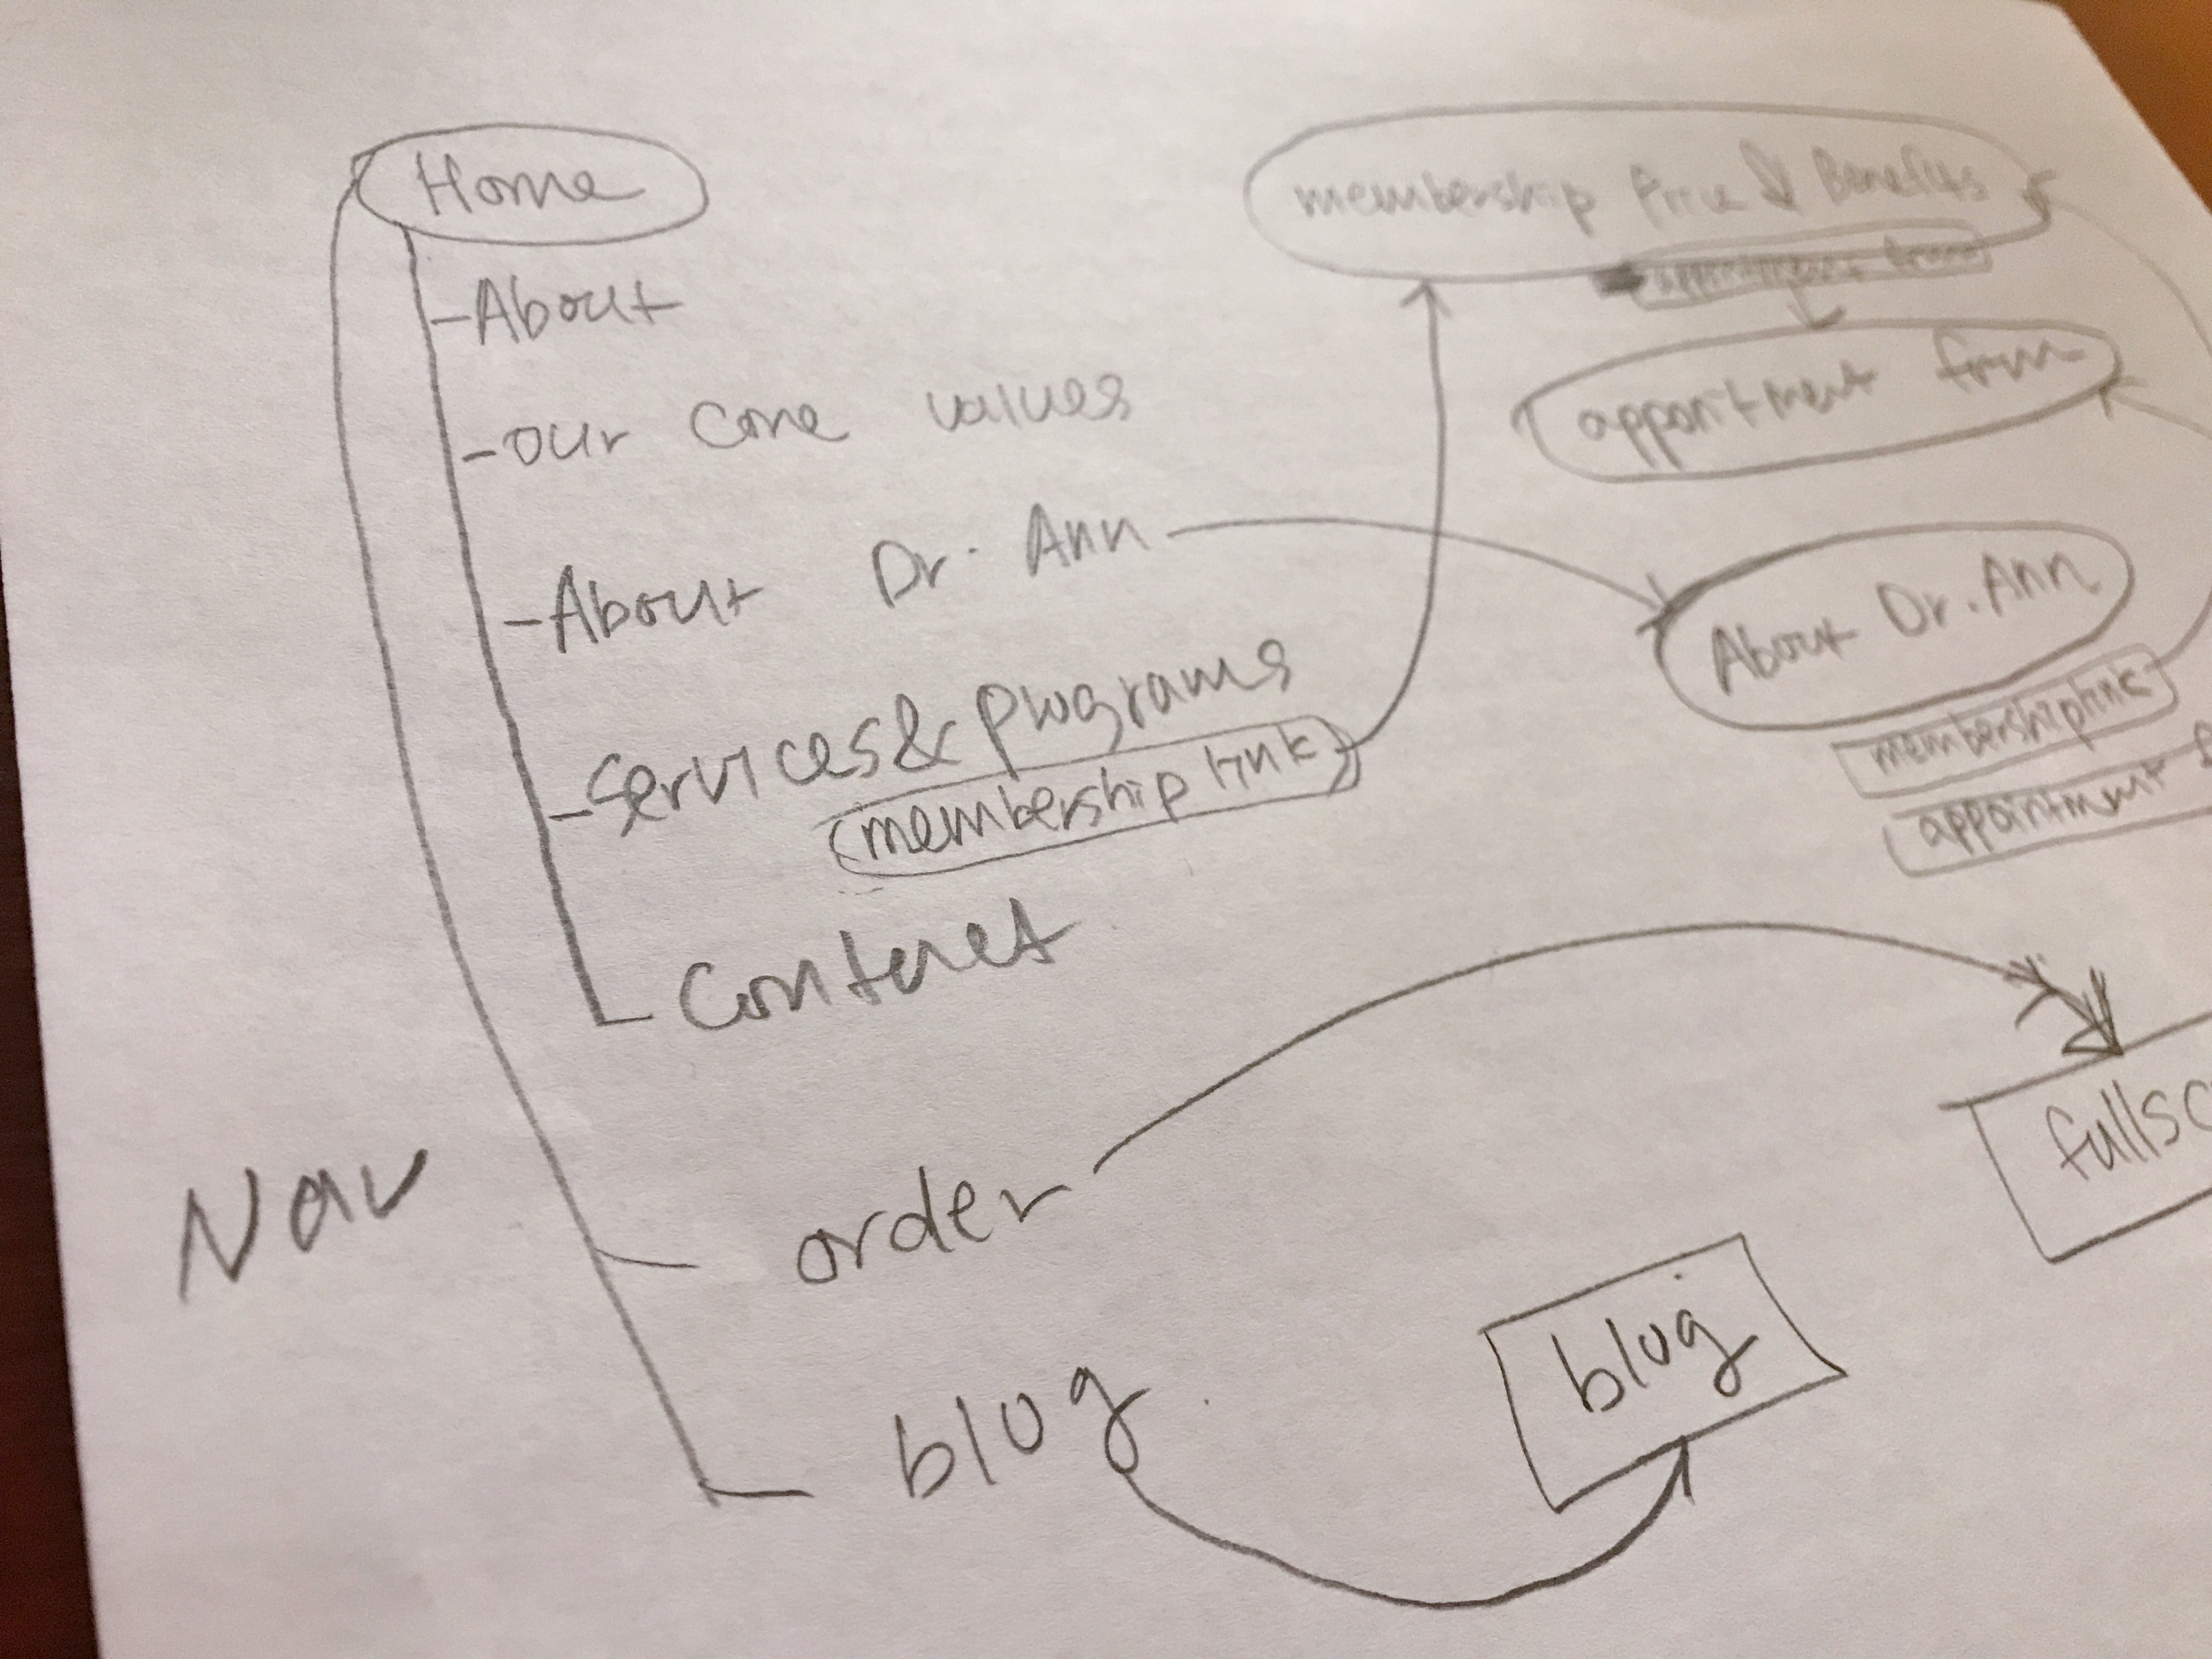 Home
- About
- our core values
- About Dr. Ann
- Services & programs
membership link
Contact
Nav
order
blog
membership Price & Benefits
appointment form
About Dr. Ann
membership link
appointment f
fullsc
blog